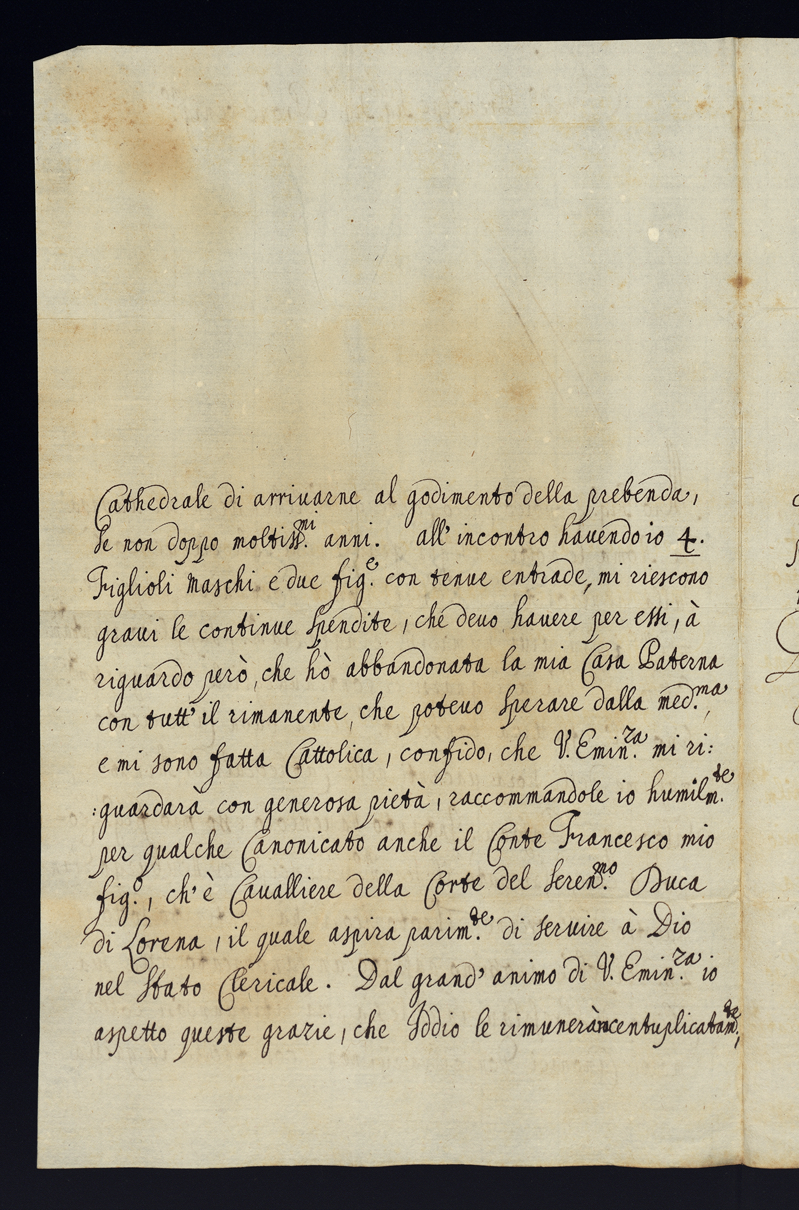 Cathedrale di arrivarne al godimento della prebenda,
se non doppo moltiss.mi anni. all' incontro havendo io 4.
Figlioli Maschi e due fig.e con tenue entrade, mi riescono
gravi le continue spendite, che devo havere per essi, à
riguardo però, che hò abbandonata la mia Casa Paterna
con tutt' il rimanente, che potevo sperare dalla med.ma,
e mi sono fatta Cattolica, confido, che V. Emin.za mi ri:
:guardarà con generosa pietà, raccommandole io humilm.te
per qualche Canonicato anche il Conte Francesco mio
fig.o, ch' è Cavalliere della Corte del Seren.mo Duca
di Lorena, il quale aspira parim.te di servire à Dio
nel Stato Clericale. Dal grand' animo di V. Emin.za io
aspetto queste grazie, che Iddio le rimunerà centuplicatam.te,